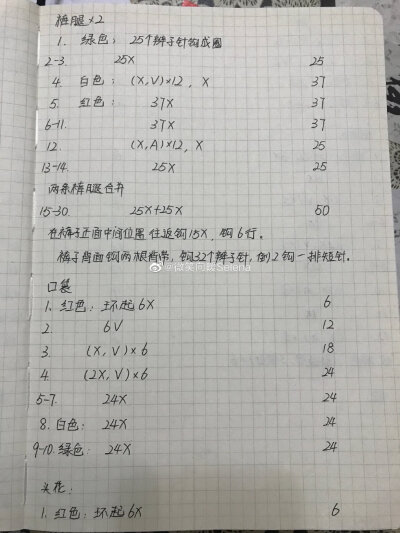 裤腿×2
1. 绿色: 25个辫子针钩成圈
2-3. 25X 25
4. 白色: (X,V)×12, X 37
5. 红色: 37X 37
6-11. 37X 37
12. (X,A)×12, X 25
13-14. 25X 25
两条裤腿合并
15-30. 25X+25X 50
在裤子正面中间位置往返钩15X, 钩6行。
裤子背面钩两根背带, 钩32个辫子针, 倒2钩一排短针。
@微笑向暖Selena
口袋
1. 红色: 环起6X 6
2. 6V 12
3. (X,V)×6 18
4. (2X,V)×6 24
5-7. 24X 24
8. 白色: 24X 24
9-10. 绿色: 24X 24
头花:
1. 红色: 环起6X 6